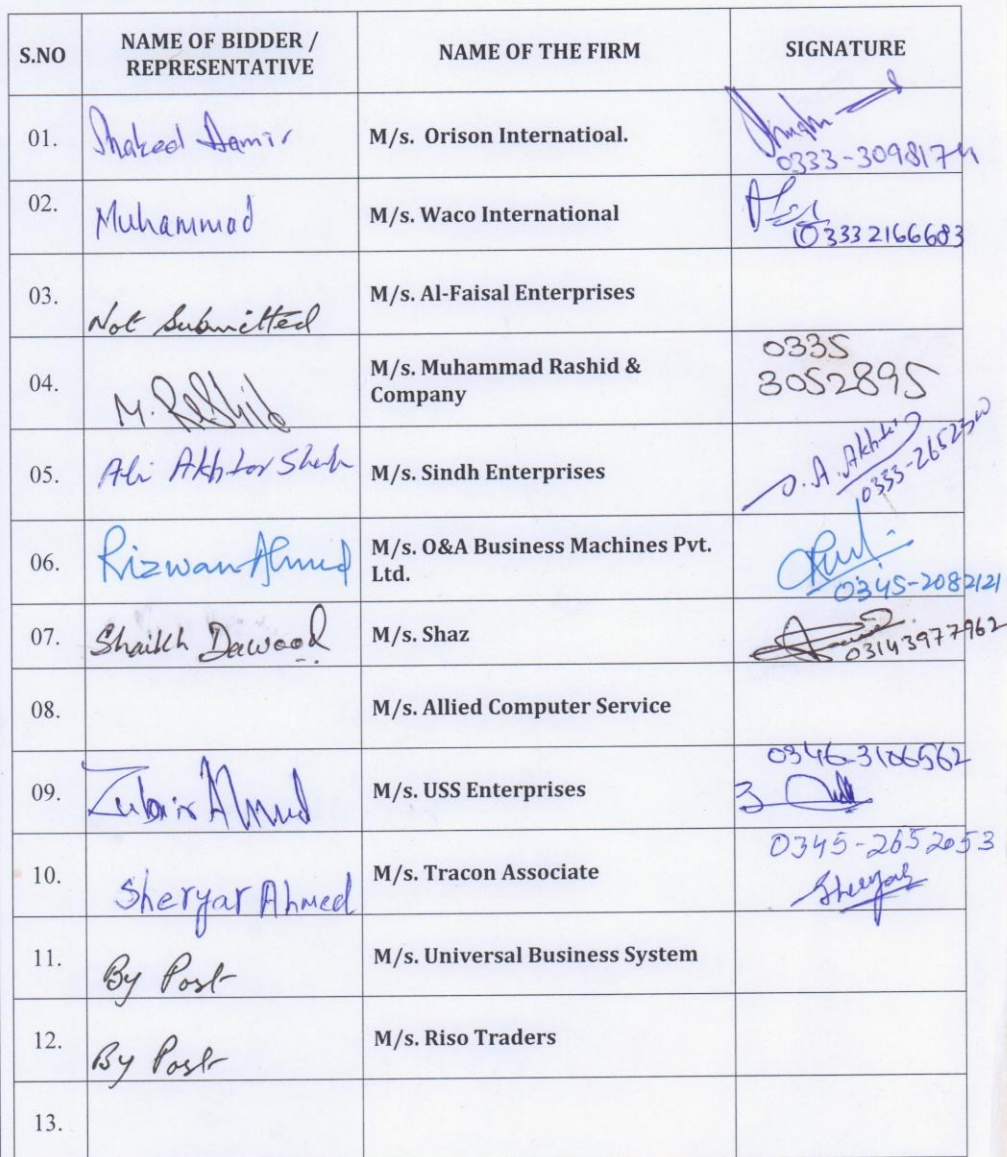 S.NO
NAME OF BIDDER /
REPRESENTATIVE
NAME OF THE FIRM
SIGNATURE
01.
M/s. Orison Internatioal.
0333-3098174
02.
Muhammad
M/s. Waco International
03332166683
03.
Not Submitted
M/s. Al-Faisal Enterprises
04.
M. Rashid
M/s. Muhammad Rashid &
Company
0335
3052895
05.
Ali Akhtar Shah
M/s. Sindh Enterprises
06.
Rizwan Ahmed
M/s. O&A Business Machines Pvt.
Ltd.
0345-2082121
07.
Shaikh Dawood
M/s. Shaz
03143977962
08.
M/s. Allied Computer Service
09.
Zubair Ahmed
M/s. USS Enterprises
0346-3106562
10.
Sheryar Ahmed
M/s. Tracon Associate
0345-2652053
Sheryar
11.
By Post
M/s. Universal Business System
12.
By Post
M/s. Riso Traders
13.